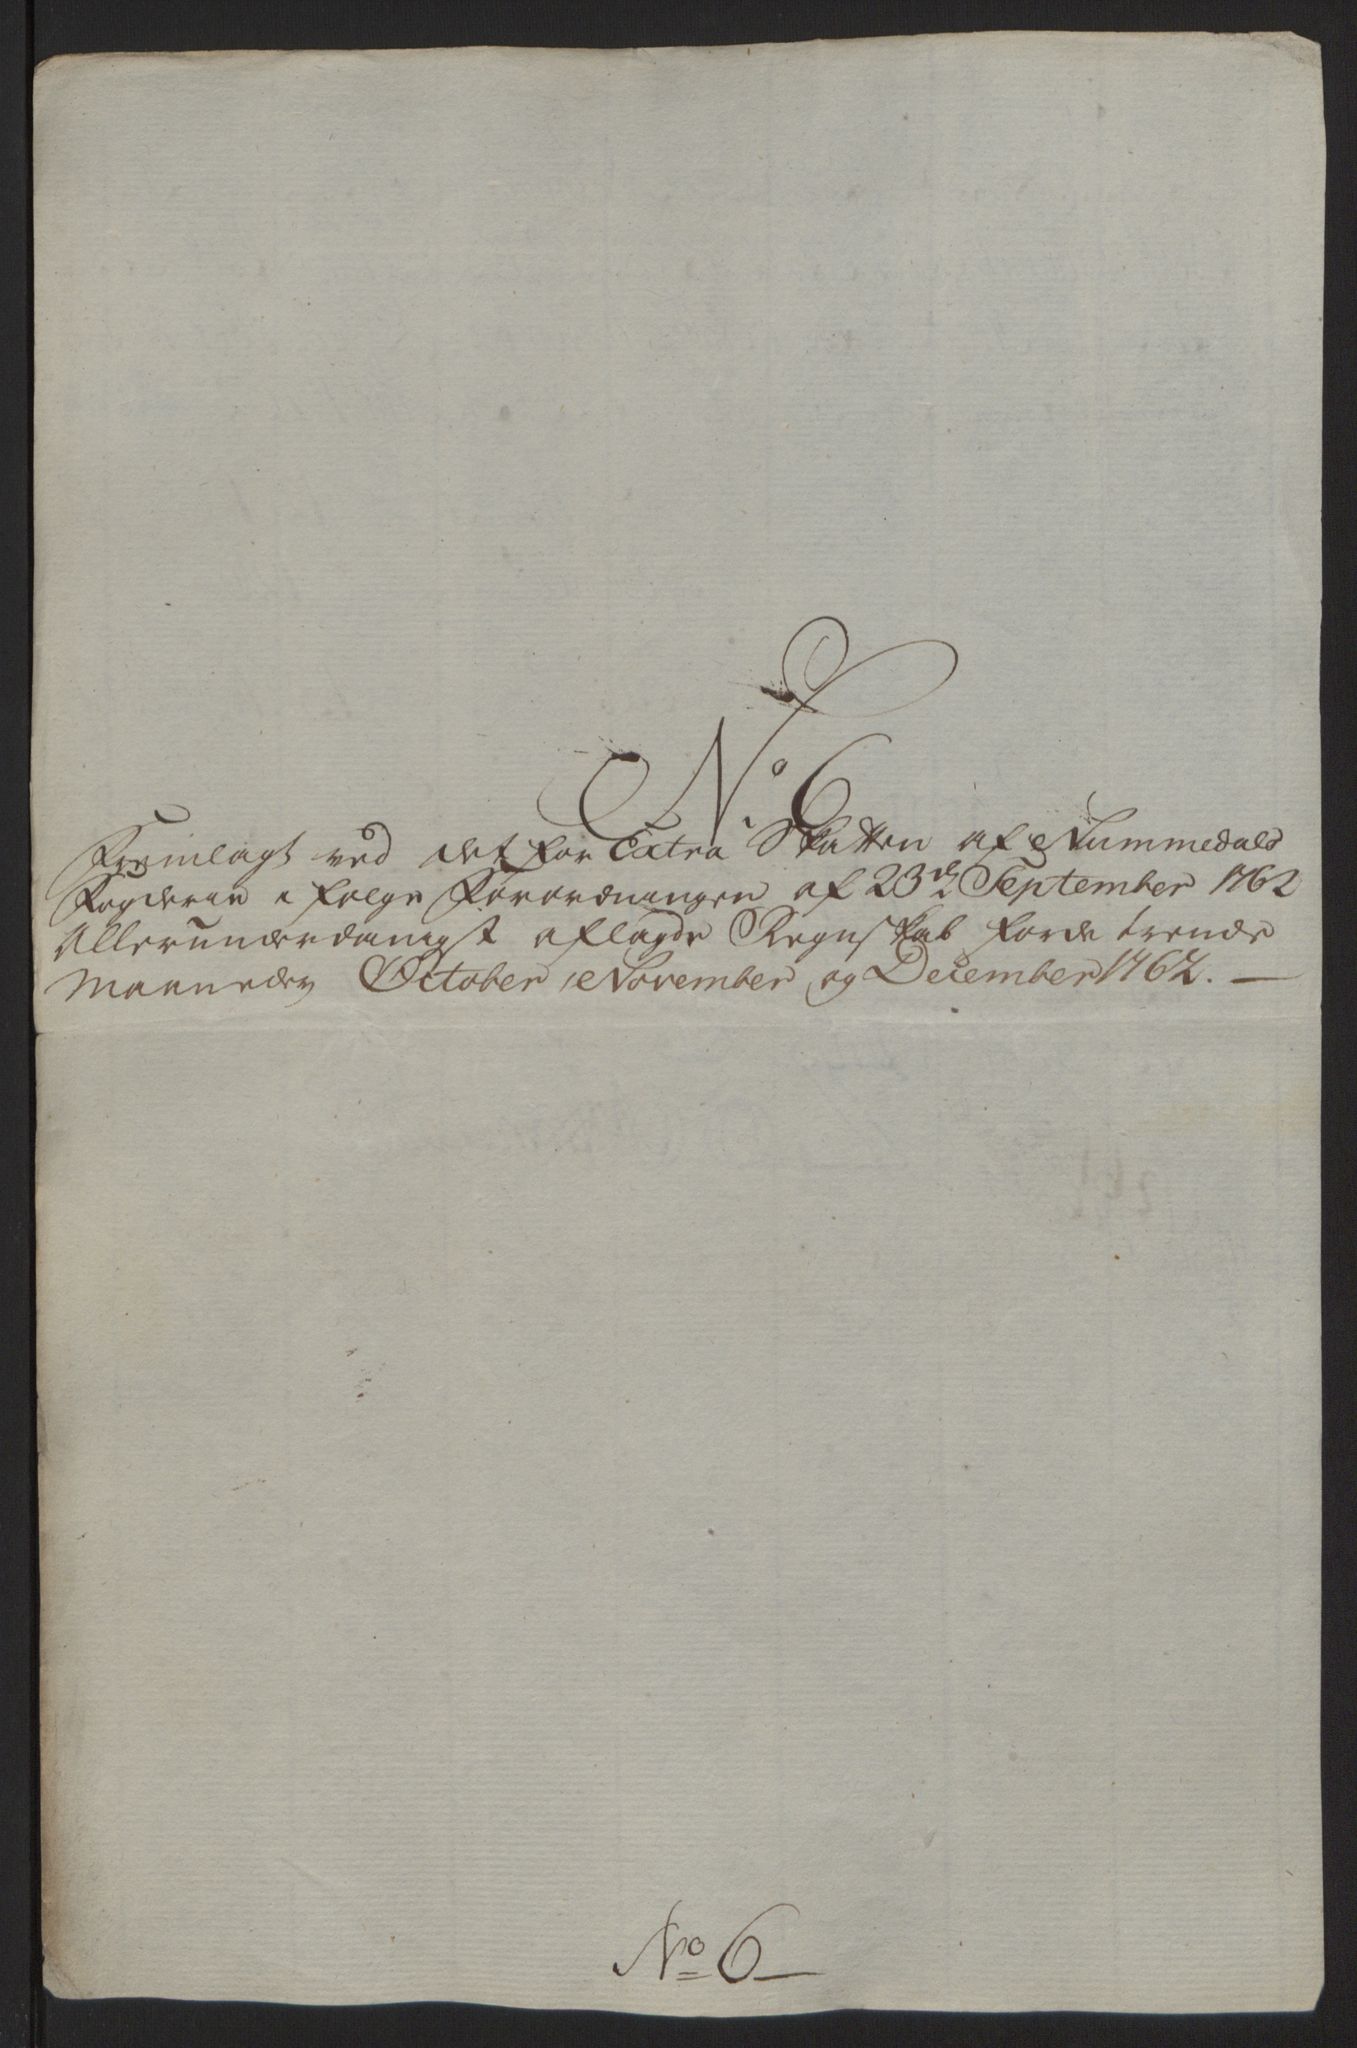 No. 6
Fremlagt ved det for Extra Skatten af Nummedals
Fogderie i følge Forordningen af 23de September 1762
Allerunderdanigst aflagde Regnskab for de trende
Maaneder October, November og December 1762. —
No 6